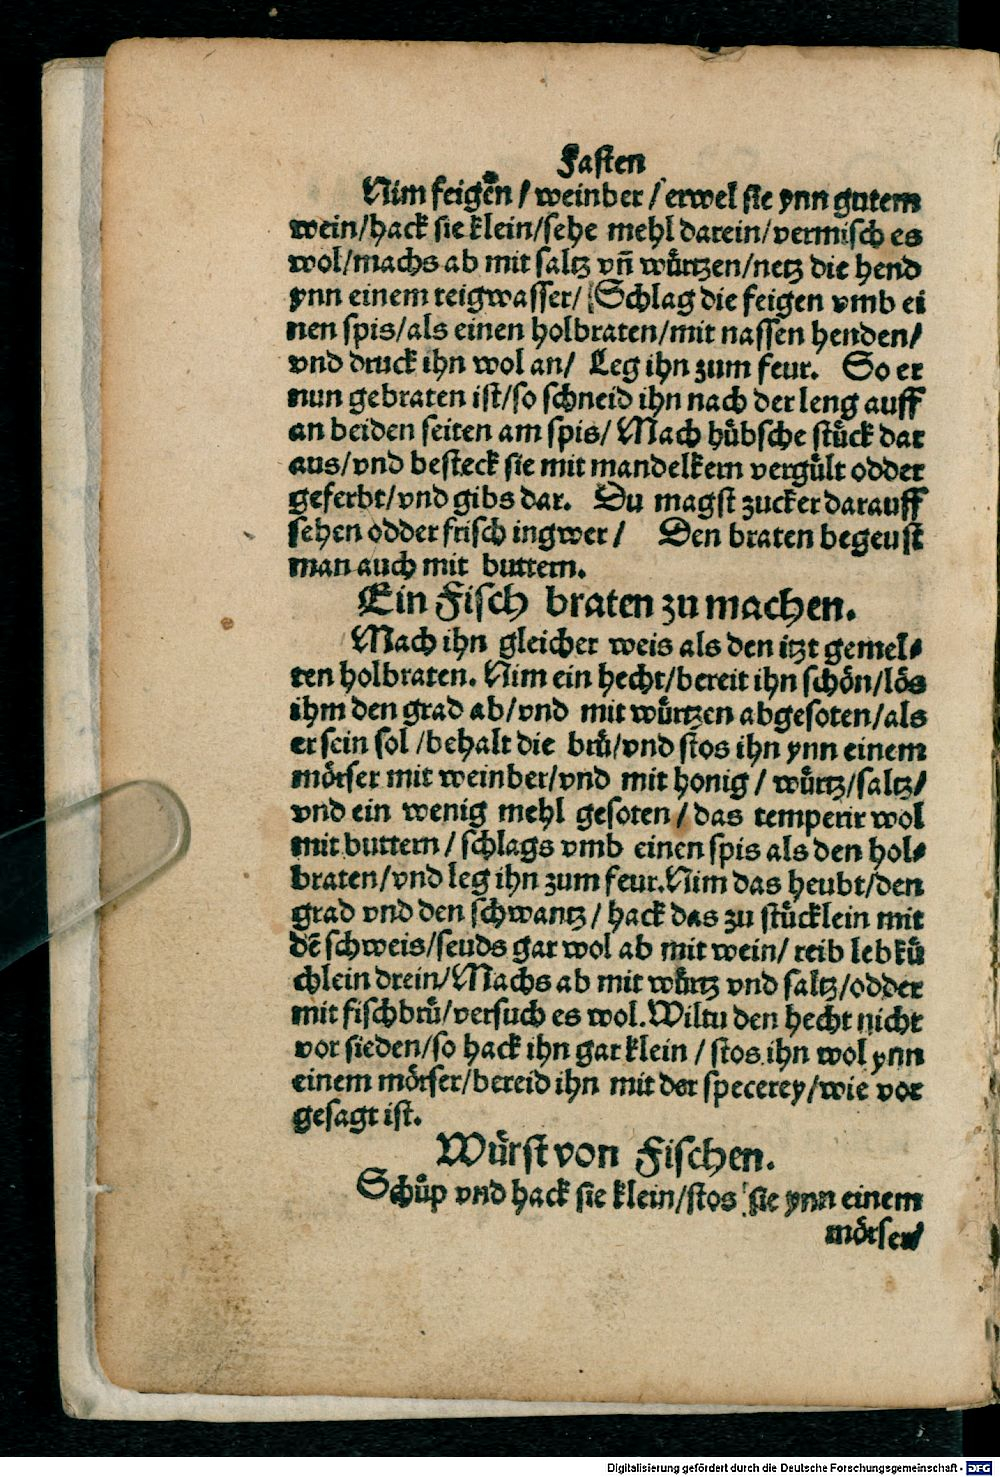 Fasten
Nim feigen / weinber / erwel sie ynn gutem
wein/hack sie klein/sehe mehl darein/vermisch es
wol/machs ab mit saltz vn̄ wuͤrtzen/netz die hend
ynn einem teigwasser/ Schlag die feigen vmb ei
nen spis/als einen holbraten/mit nassen henden/
vnd druck ihn wol an/ Leg ihn zum feur. So er
nun gebraten ist/so schneid ihn nach der leng auff
an beiden seiten am spis/ Mach huͤbsche stuͤck dar
aus/vnd besteck sie mit mandelkern verguͤlt odder
geferbt/vnd gibs dar. Du magst zucker darauff
sehen odder frisch ingwer / Den braten begeust
man auch mit buttern.
Ein Fisch braten zu machen.
Mach ihn gleicher weis als den itzt gemel⸗
ten holbraten. Nim ein hecht/bereit ihn schoͤn/loͤs
ihm den grad ab/vnd mit wuͤrtzen abgesoten/als
er sein sol /behalt die bruͤ/vnd stos ihn ynn einem
moͤrser mit weinber/vnd mit honig / wuͤrtz/saltz/
vnd ein wenig mehl gesoten / das temperir wol
mit buttern / schlags vmb einen spis als den hol⸗
braten/vnd leg ihn zum feur. Nim das heubt/den
grad vnd den schwantz / hack das zu stuͤcklein mit
dē schweis/seuds gar wol ab mit wein/ reib lebkuͤ
chlein drein/Machs ab mit wuͤrtz vnd saltz/odder
mit fischbruͤ/versuch es wol. Wiltu den hecht nicht
vor sieden/so hack ihn gar klein / stos ihn wol ynn
einem moͤrser/bereid ihn mit der specerey/wie vor
gesagt ist.
Wuͤrst von Fischen.
Schuͤp vnd hack sie klein/stos sie ynn einem
moͤrser/
Digitalisierung gefördert durch die Deutsche Forschungsgemeinschaft - DFG